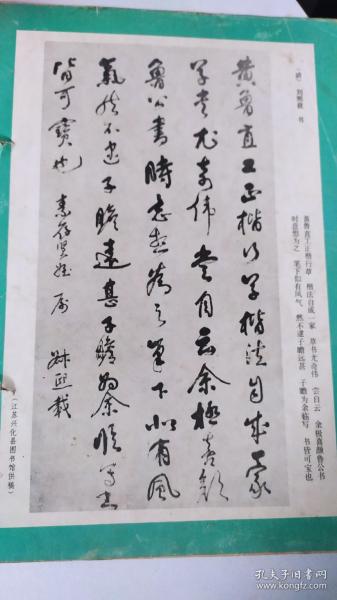 (清) 刘熙载 书
黄鲁直工正楷行草 楷法自成一家 草书尤奇伟 尝自云 余极喜颜鲁公书
时意想为之 笔下似有风气 然不逮子瞻远甚 子瞻为余临写 书皆可宝也
黄鲁直工正楷行草楷法自成一家
草书尤奇伟尝自云余极喜颜
鲁公书时意想为之笔下似有风
气然不逮子瞻远甚子瞻为余临写书
皆可宝也 熙载
(江苏兴化县图书馆供稿)
孔夫子旧书网